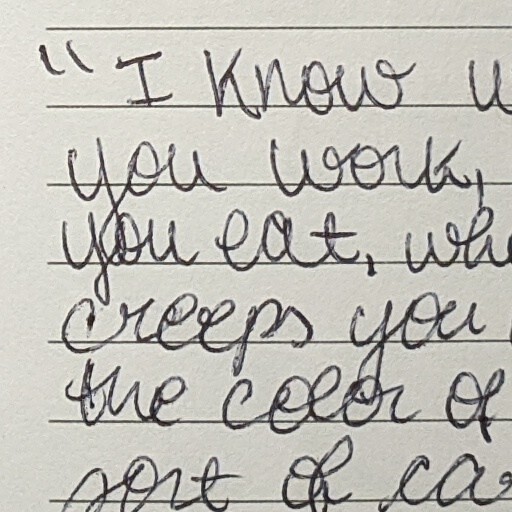 "I know
you work,
you eat,
creeps you
the color of
sort of